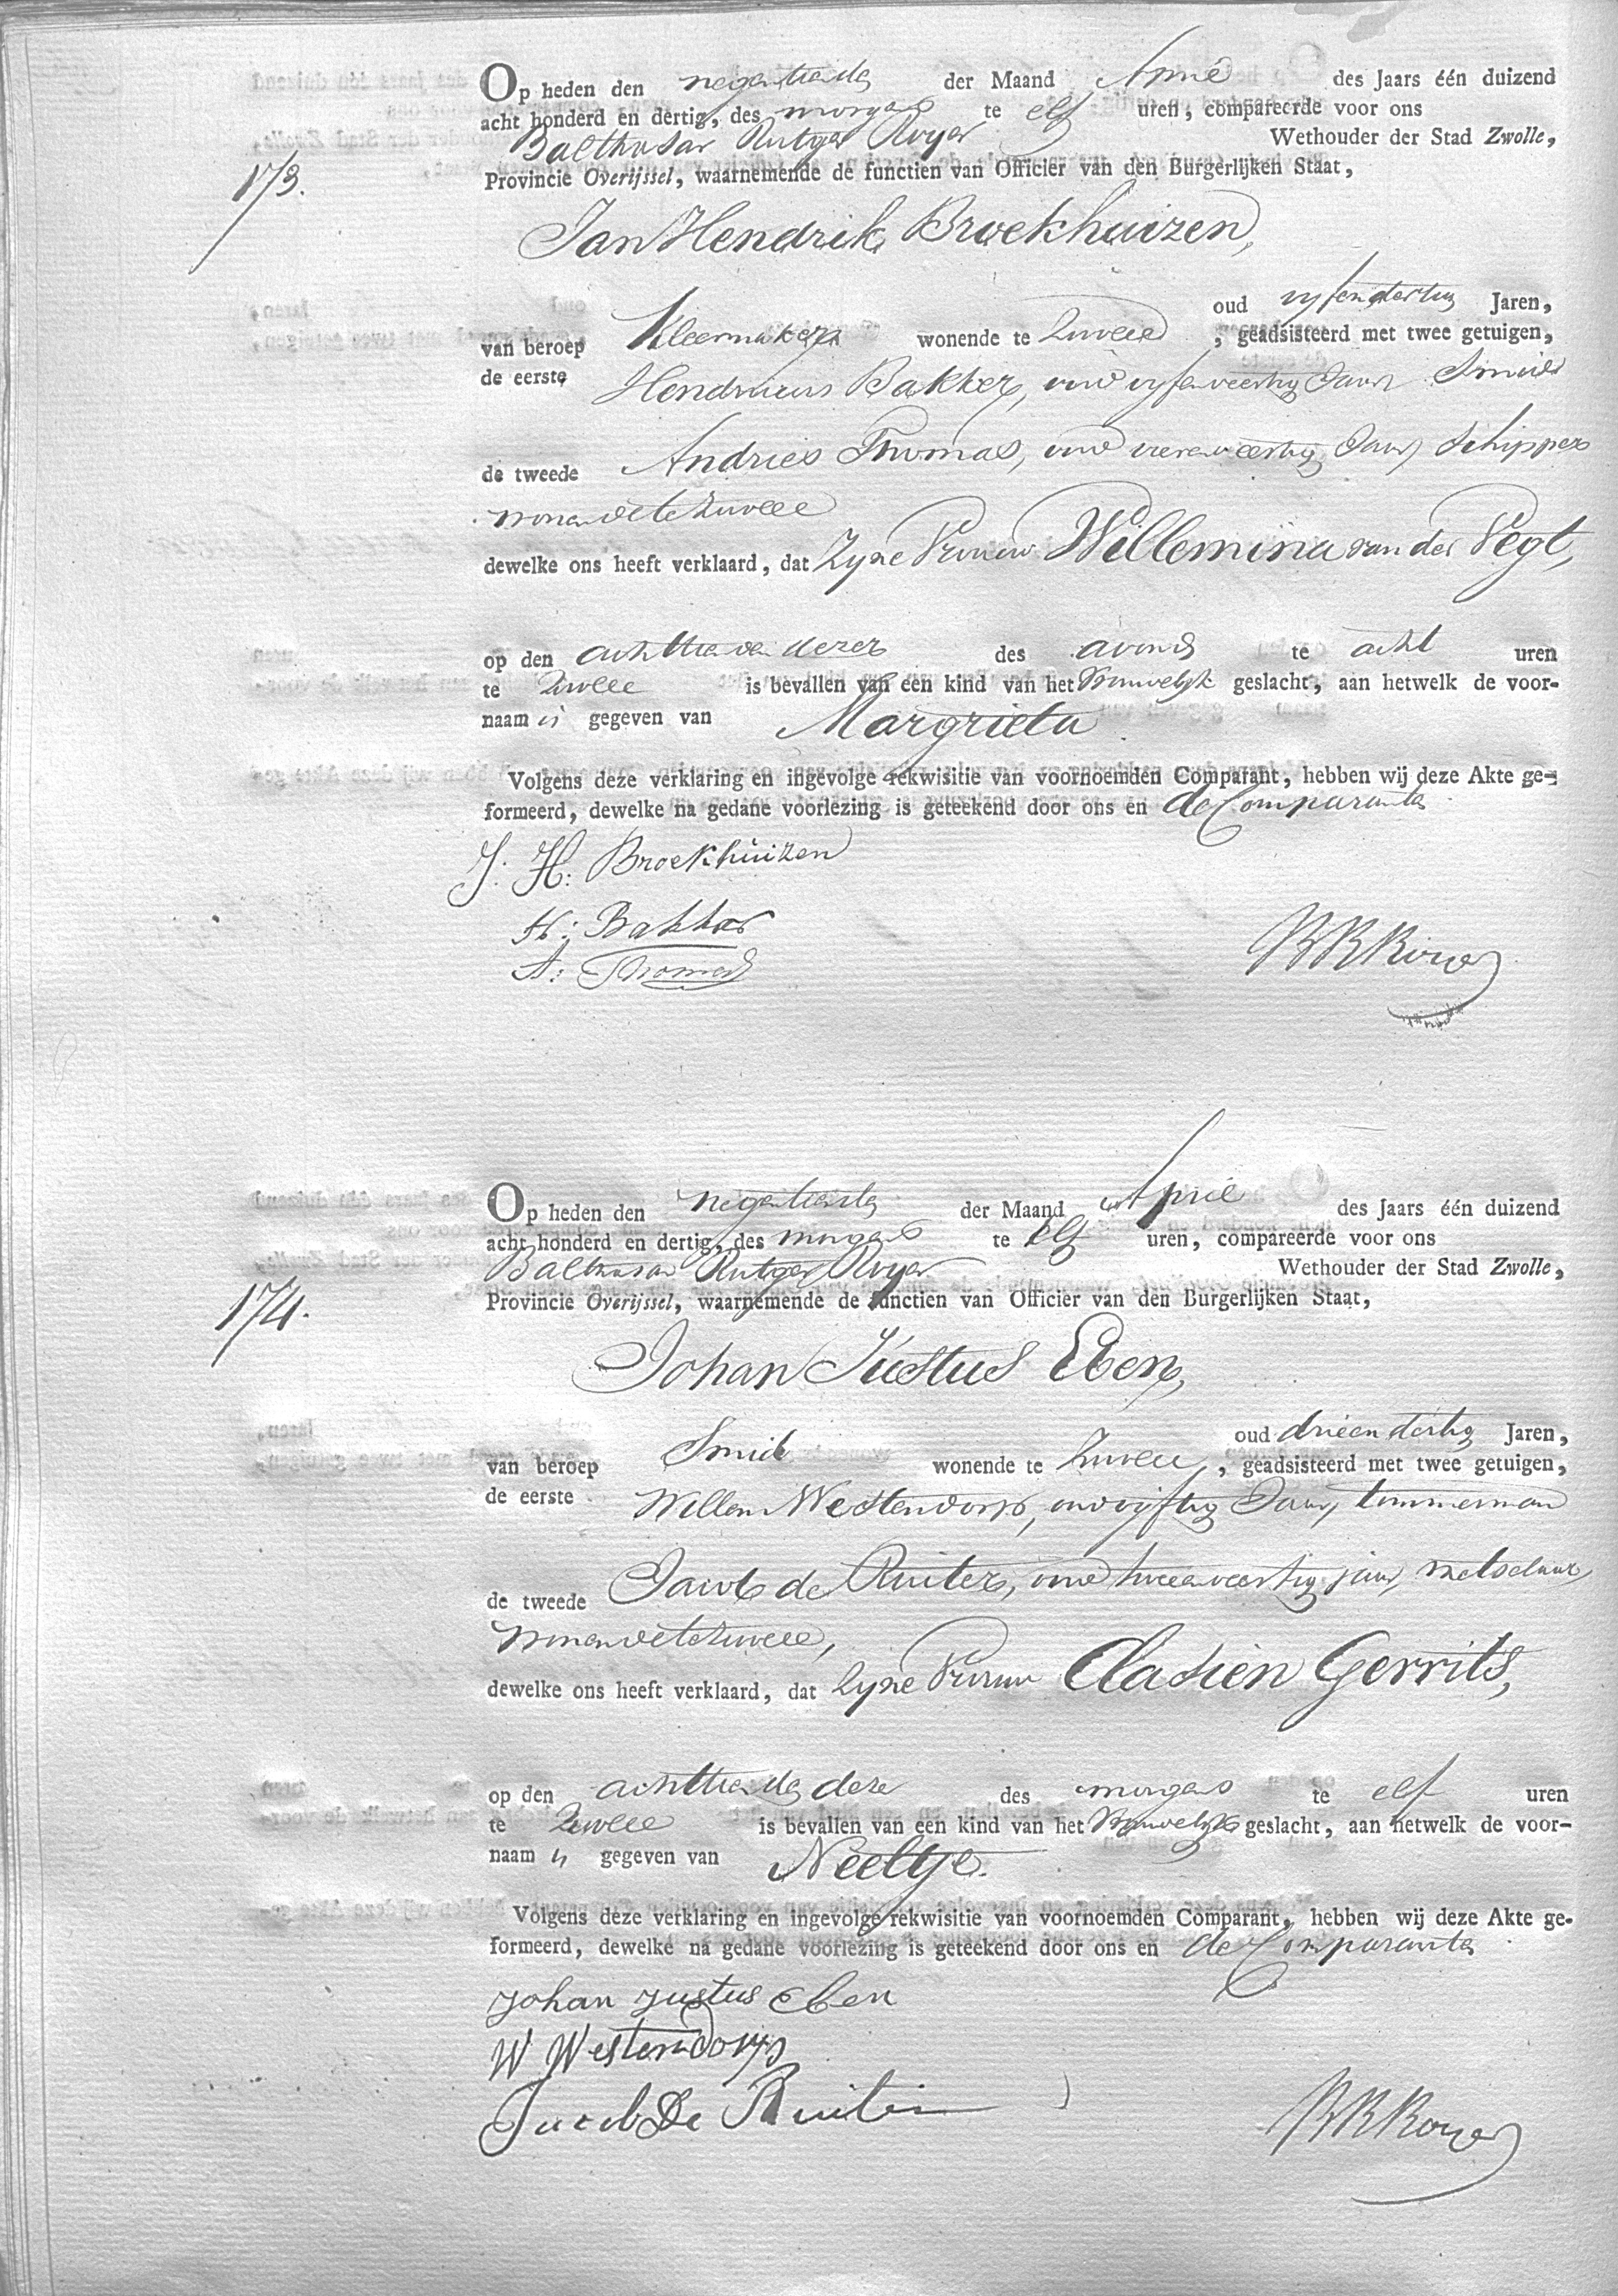 Op heden den negentienden der Maand April des Jaars één duizend
acht honderd en dertig, des morgens te elf uren, compareerde voor ons
Balthasar Rutger Royer Wethouder der Stad Zwolle,
173.
Provincie Overijssel, waarnemende de functien van Officier van den Burgerlijken Staat,
Jan Hendrik Broekhuizen,
oud vyfendertig Jaren,
van beroep Kleermaker wonende te Zwolle, geadsisteerd met twee getuigen,
de eerste Hendricus Bakker, oud vyfenveertig Jaar, Smid
de tweede Andries Thomas, oud vierenveertig Jaar, Schipper
wonende te Zwolle
dewelke ons heeft verklaard, dat Zyne Vrouw Willemina van der Vegt,
op den achttienden dezer des avonds te acht uren
te Zwolle is bevallen van een kind van het Vrouwelyk geslacht, aan hetwelk de voor-
naam is gegeven van Margrieta
Volgens deze verklaring en ingevolge rekwisitie van voornoemden Comparant, hebben wij deze Akte ge-
formeerd, dewelke na gedane voorlezing is geteekend door ons en de Comparanten
J. H: Broekhuizen
H: Bakker
A: Thomas
BRRoyer
Op heden den negentienden der Maand April des Jaars één duizend
acht honderd en dertig, des morgens te elf uren, compareerde voor ons
Balthasar Rutger Royer Wethouder der Stad Zwolle,
174.
Provincie Overijssel, waarnemende de functien van Officier van den Burgerlijken Staat,
Johan Justus Eben,
oud drieendertig Jaren,
van beroep Smid wonende te Zwolle, geadsisteerd met twee getuigen,
de eerste Willem Westendorp, oud vijftig Jaar, timmerman
de tweede Jacob de Ruiter, oud tweeenveertig jaar, metselaar,
wonende te Zwolle,
dewelke ons heeft verklaard, dat Zyne Vrouw Clasien Gerrits,
op den achttienden dezer des morgens te elf uren
te Zwolle is bevallen van een kind van het Vrouwelyk geslacht, aan hetwelk de voor-
naam is gegeven van Neeltje.
Volgens deze verklaring en ingevolge rekwisitie van voornoemden Comparant, hebben wij deze Akte ge-
formeerd, dewelke na gedane voorlezing is geteekend door ons en de Comparanten
Johan Justus Eben
W Westendorp
Jacob De Ruiter
BRRoyer